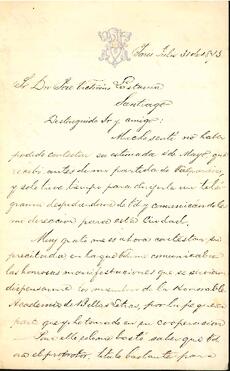 Julio 31 de 1873
Sr Dn José Victorino Lastarria
Santiago
Distinguido Sr y amigo:
Mucho sentí no haber
podido contestar su estimada de Mayo que
recibí antes de mi partida de Valparaiso
y solo tuve tiempo para dirijirle un telé
grama despidiéndome de Ud y comunicándole
mi desacion para esta Ciudad.
Muy grato me es ahora contestar su
precitada en la que Ud me comunica
las honrosas manifestaciones que se sirvieron
dispensarme los miembros de la Honorable
Academia de Bellas Letras, por la pequeña
parte que yo he tomado en su cooperacion
Para ello estimo basta saber que Ud
es el protector, título bastante para